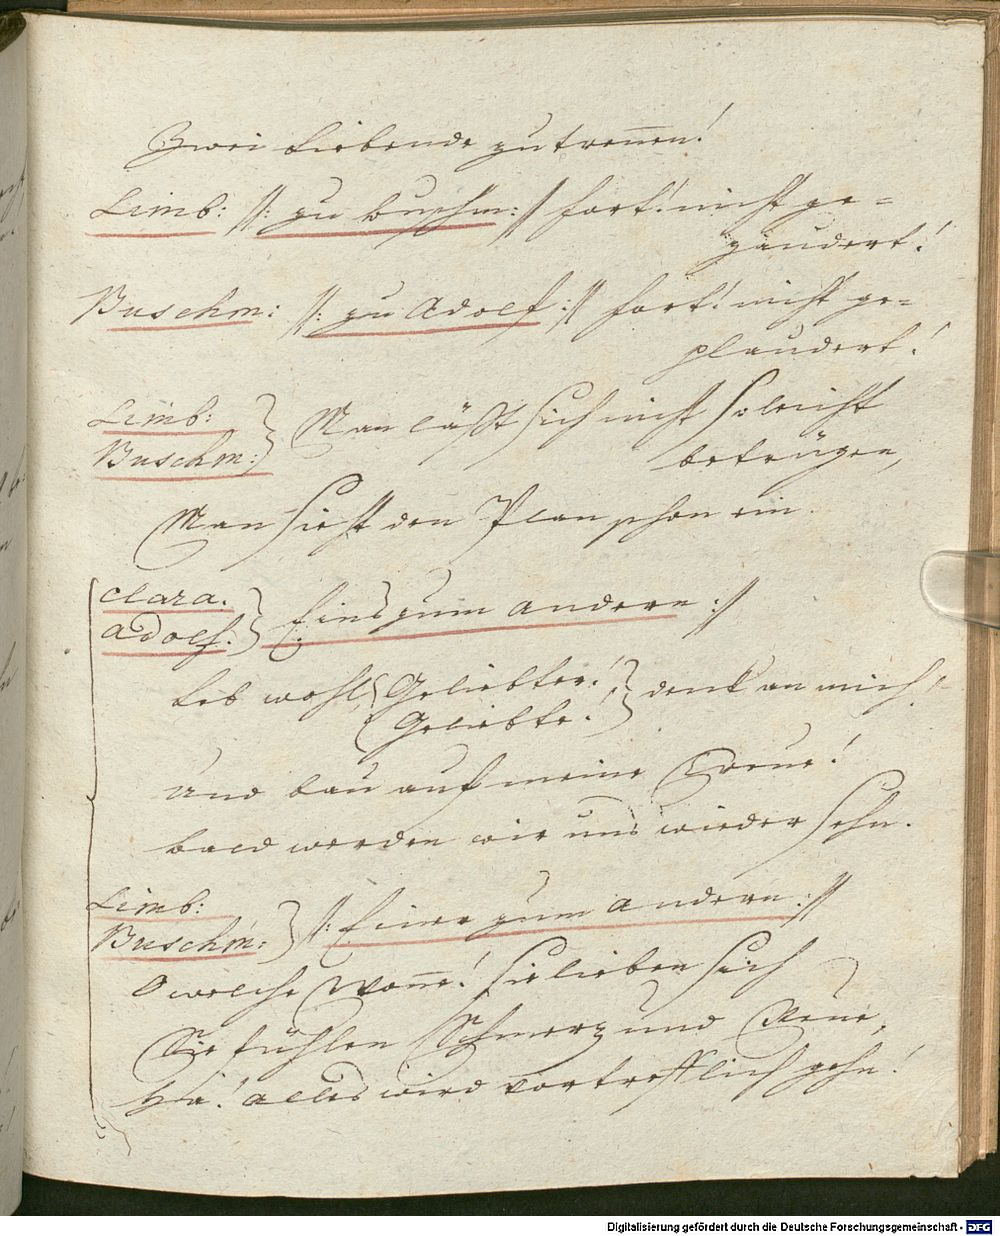 Zwei Liebende zu treñen!
Limb: //: zu Buschm: // fort! nicht ge-
zaudert!
Buschm: //: zu Adolf :// fort! nicht ge-
plaudert!
Limb:
Buschm: } Man läßt sich nicht so leicht
betrügen,
Man sieht den Plan schon ein.
Clara.
Adolf. } Eins zum andern ://
Leb wohl { Geliebter! } denk an mich!
Geliebte!
Und bau auf meine Treue!
bald werden wir uns wieder sehn.
Limb:
Buschm: } //: Einer zum andern ://
O welche Woñe! sie lieben sich
Sie fühlen Schmerz und Reue,
Ha! alles wird vortrefflich gehn!
Digitalisierung gefördert durch die Deutsche Forschungsgemeinschaft - DFG